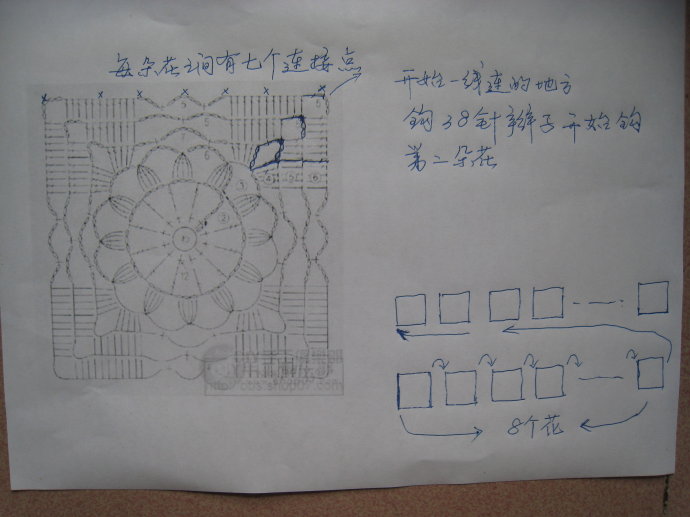 每朵花之间有七个连接点
开始一线连的地方
钩38针辫子开始钩
第二朵花
5
6
5
6
3
4
5
6
2
12
8个花